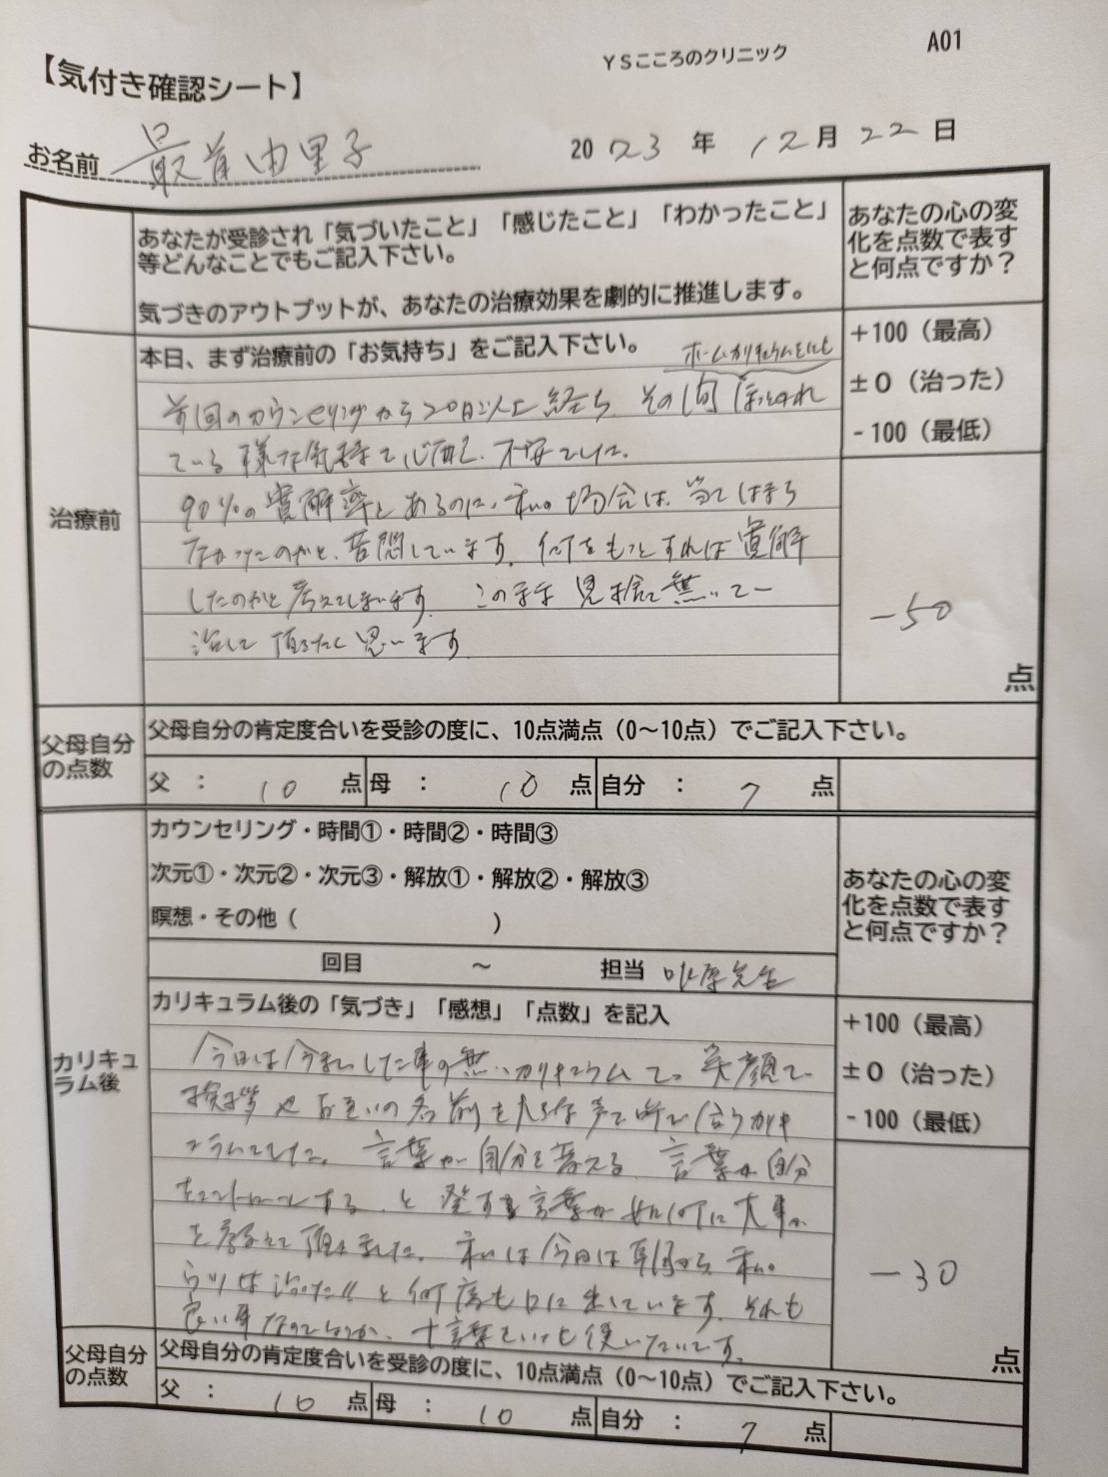 A01
YSこころのクリニック
【気付き確認シート】
お名前 最首由里子 2023年12月22日
あなたが受診され「気づいたこと」「感じたこと」「わかったこと」
等どんなことでもご記入下さい。
気づきのアウトプットが、あなたの治療効果を劇的に推進します。
あなたの心の変
化を点数で表す
と何点ですか？
治療前
本日、まず治療前の「お気持ち」をご記入下さい。
ホームカリキュラムをにも
前回のカウンセリングから20日以上経ち、その間
ている様な気持で心配、不安でした。
90%の寛解率とあるのに、私の場合は、当てはまら
なかったのかと、苦悶しています。何をもっとすれば寛解
したのかと考えてしまいます。このまま見捨て無いで
治して頂きたく思います
+100（最高）
±0（治った）
-100（最低）
-50
点
父母自分
の点数
父母自分の肯定度合いを受診の度に、10点満点（0～10点）でご記入下さい。
父 ： 10 点 母 ： 10 点 自分 ： 7 点
カリキュ
ラム後
カウンセリング・時間①・時間②・時間③
次元①・次元②・次元③・解放①・解放②・解放③
瞑想・その他（ ）
回目 ～ 担当 先生
あなたの心の変
化を点数で表す
と何点ですか？
カリキュラム後の「気づき」「感想」「点数」を記入
今日は今までした事の無いカリキュラムで、笑顔で
挨拶やお互いの名前を大きな声で呼び合うカリキ
ラムでした。言葉が自分を変える、言葉が自分
をコントロールする、と発する言葉が如何に大事か
を教えて頂きました。私は今日は朝から私の
うつは治った!!と何度も口に出しています。それも
良い事なのでしょうか、十言葉をいつも使いたいです。
+100（最高）
±0（治った）
-100（最低）
-30
点
父母自分
の点数
父母自分の肯定度合いを受診の度に、10点満点（0～10点）でご記入下さい。
父 ： 10 点 母 ： 10 点 自分 ： 7 点